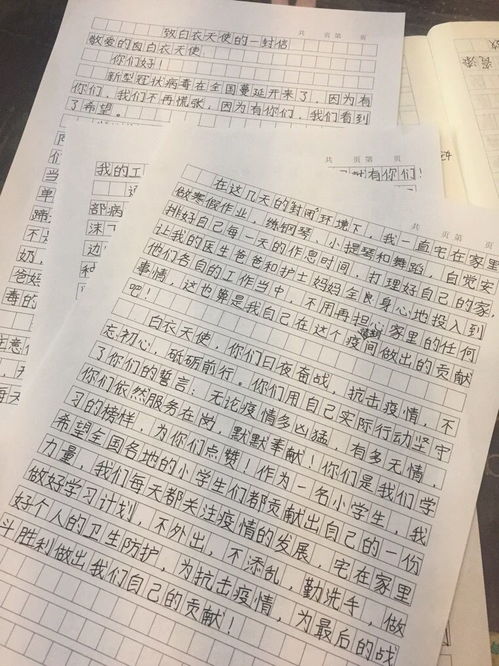 共 页 第 页
致白衣天使的一封信
敬爱的白衣天使
你们好！
新型冠状病毒在全国蔓延开来了，因为有
你们，我们不再慌张，因为有你们，我们看到
了希望。
我的工
有你们！
部病
沫
边
种
当
单
不
奶，
爸
毒的
共 页 第 页
在这几天的封闭环境下，我一直宅在家里
做寒假作业，练钢琴、小提琴和舞蹈，自觉安
排好自己每一天的作息时间，打理好自己的家，
让我的医生爸爸和护士妈妈全身心地投入到
他们各自的工作当中，不用再担心家里的任何
事情，这也算是我自己在这个疫情期间做出的贡献
吧！
白衣天使，你们日夜奋战，抗击疫情，不
忘初心，砥砺前行。你们用自己实际行动坚守
了你们的誓言：无论疫情多凶猛，有多无情，
你们依然服务在岗，默默奉献！你们是我们学
习的榜样，为你们点赞！作为一名小学生，我
希望全国各地的小学生们都贡献出自己的一份
力量，我们每天都关注疫情的发展，宅在家里
做好学习计划，不外出，不添乱，勤洗手，做
好个人的卫生防护，为抗击疫情，为最后的战
斗胜利做出我们自己的贡献！